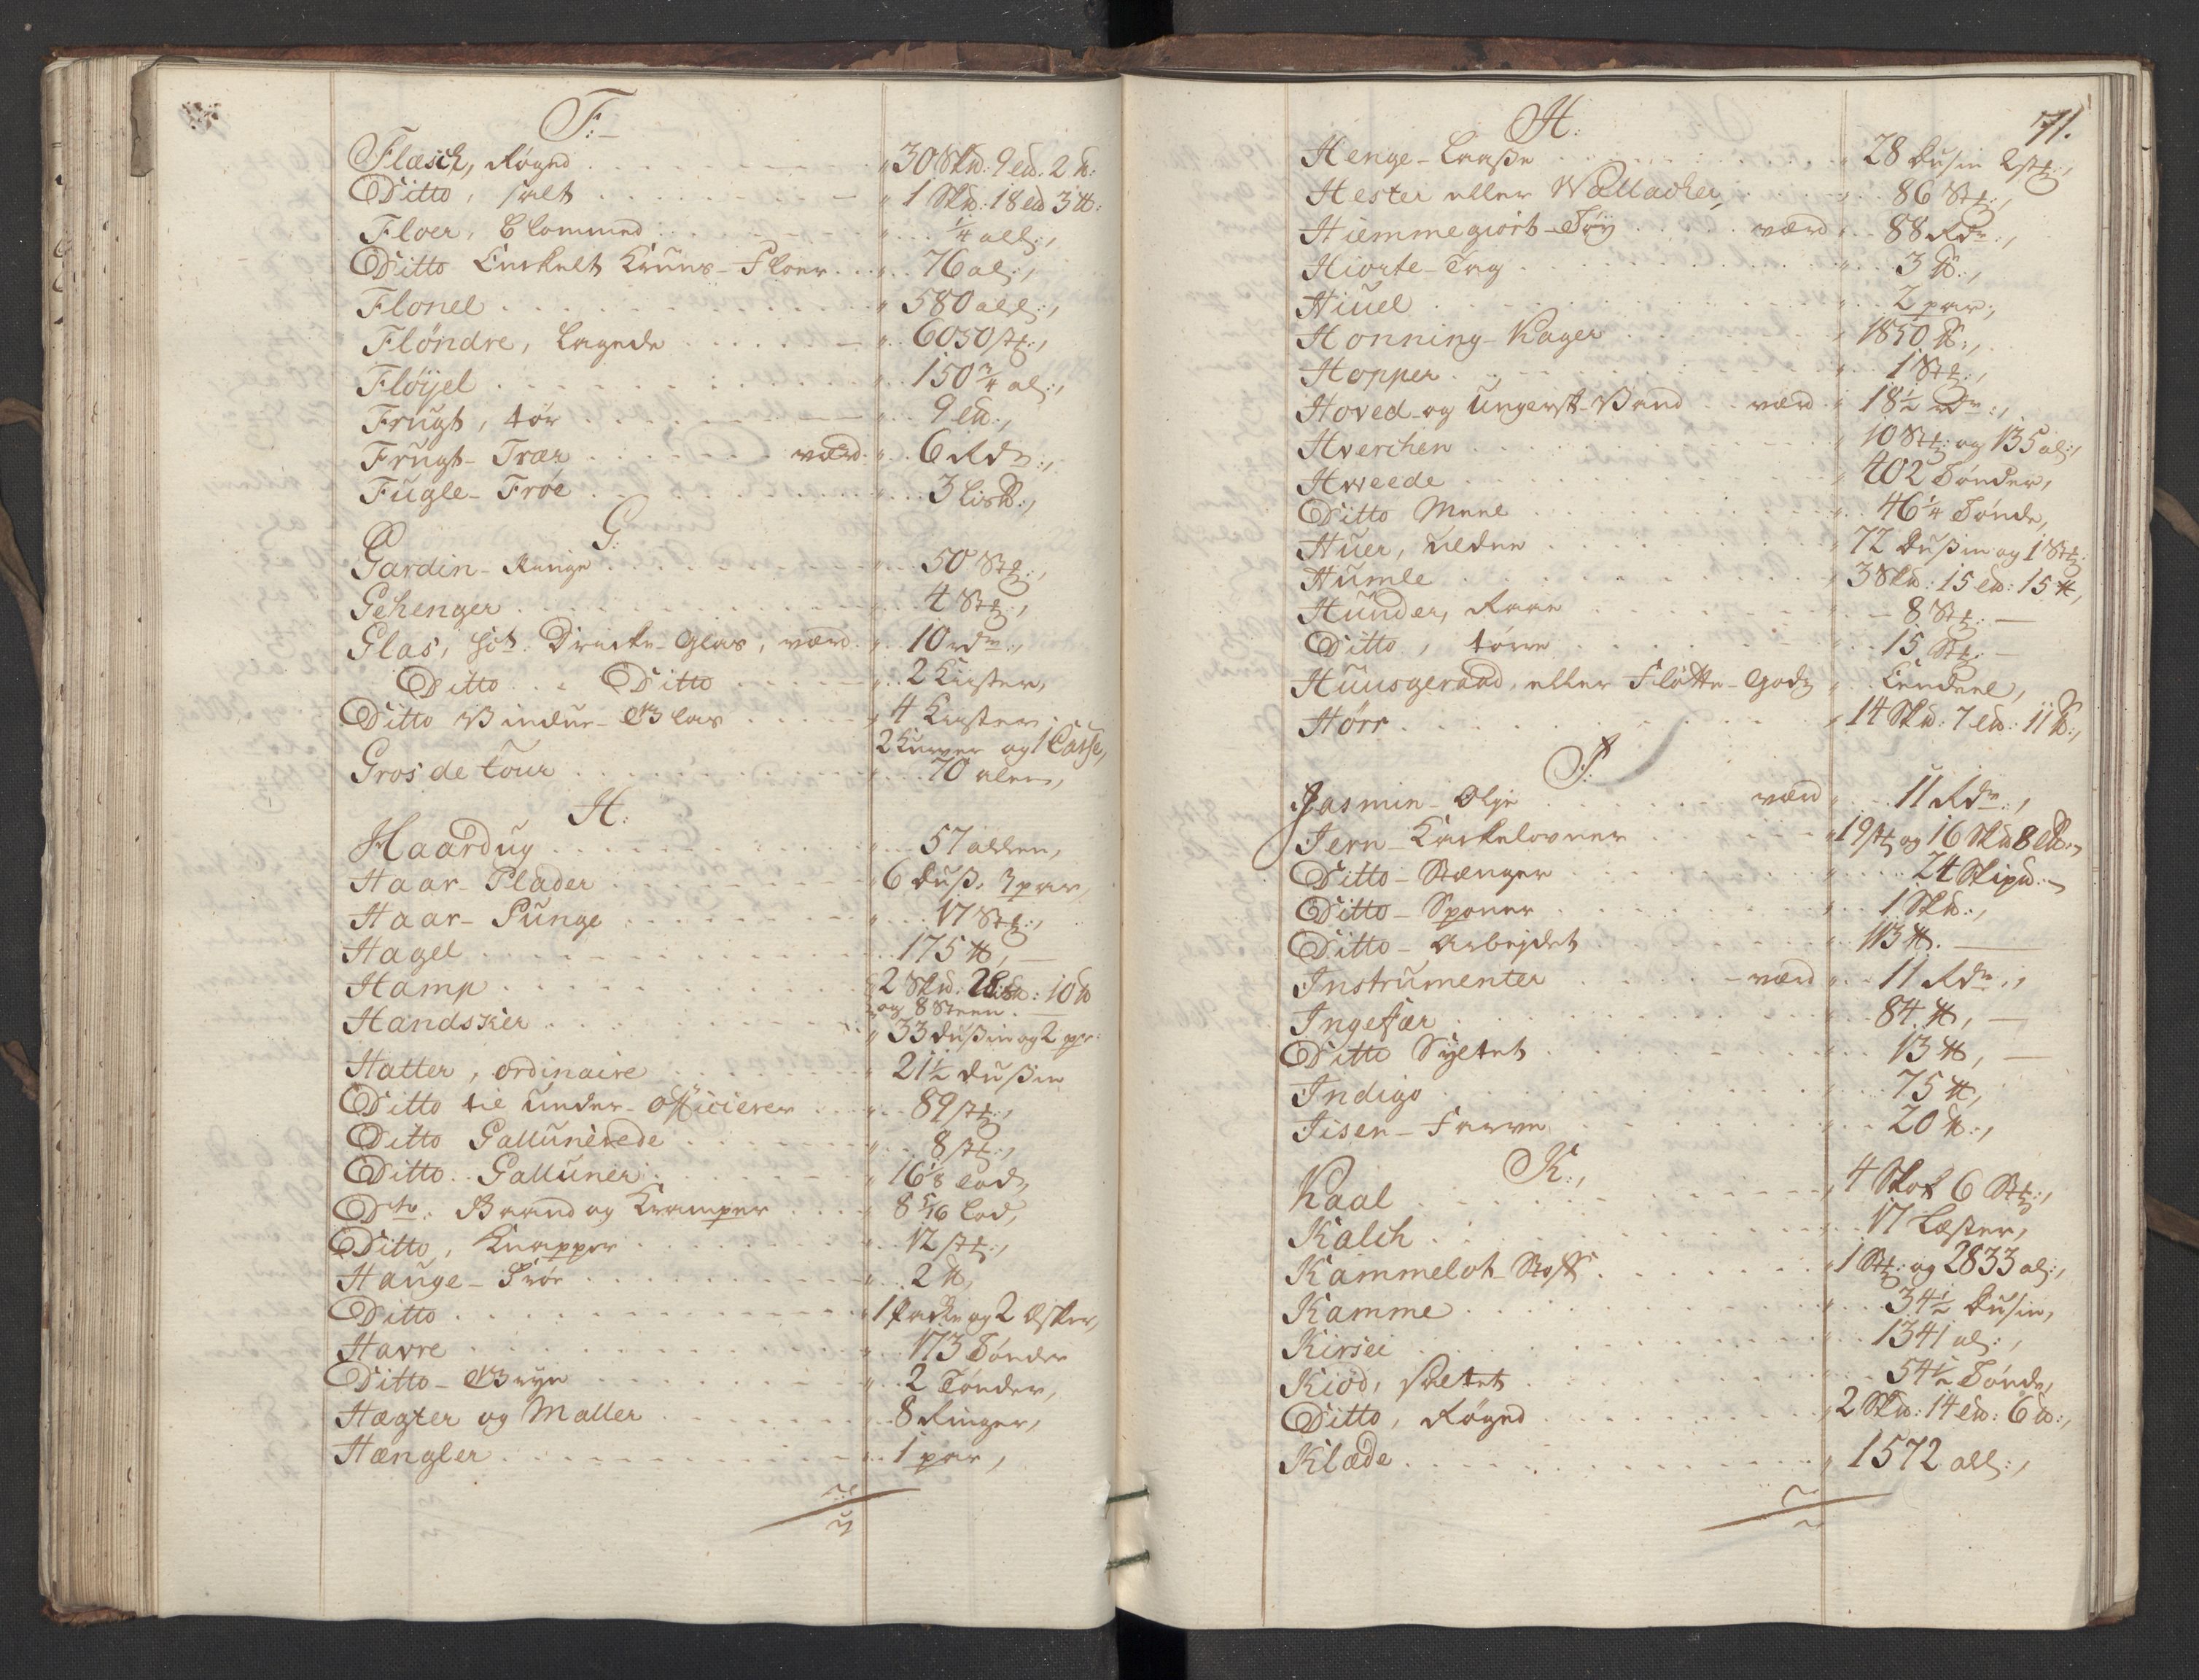 F:
Flæsch, Røged . . . 30 Sk℔: 9 L℔: 2 ℔:
Ditto, salt . . . 1 Sk℔: 18 L℔ 3 ℔:
Floer, Blommed . . . 1/4 all:,
Ditto Enkelt Kruus-Floer . . . 76 al:,
Flonel . . . 580 all:,
Fløndre, Lagede . . . 6050 stk:,
Fløyel . . . 150 3/4 al:,
Frugt, tør . . . 9 L℔:,
Frugt-Træer . . . værd . . 6 Rdr:,
Fugle-Frøe . . . 3 Lis℔:,
G:
Gardin-Ringe . . . 50 Stk:,
Gehenger . . . 4 Stk:,
Glas, sc: Dricke-Glas, værd . . 10 rdr:,
Ditto . . Ditto . . . 2 Kister,
Ditto Vindue-Glas . . . 4 Kister
2 Kurver og 1 Casse,
Gros de Tour . . . 70 alen,
H:
Haardug . . . 57 allen,
Haar-Plader . . . 6 duß: 3 par,
Haar-Punge . . . 17 Stk:,
Hagel . . . 175 ℔,
Hamp . . . 2 Sk℔: 2 Lis℔: 10 ℔
og 8 Steen.
Handsker . . . 33 dußin og 2 par:
Hatter, ordinaire . . . 21 1/2 dußin
Ditto til Under-Officierer . . . 89 stk:,
Ditto Gallunerede . . . 8 stk:,
Ditto Galluner . . . 16 1/8 Lod,
Dto: Baand og Kramper . . . 8 5/16 Lod,
Ditto, Knapper . . . 12 stk:,
Hauge-Frøe . . . 2 ℔,
Ditto . . . 1 Packe og 2 Æsker,
Havre . . . 173 Tønder
Ditto-Gryn . . . 2 Tønder,
Hægter og Maller . . . 8 Ringer,
Hængler . . . 1 par,
71.
H:
Henge-Laaße . . . 28 Dusin 2 stk:,
Hester eller Wallacker, . . . 86 Stk:,
Hiemmegiort-Tøy . . . værd . . 88 Rdr:,
Hiorte-Tag . . . 3 ℔:,
Hiuel . . . 2 par,
Honning-Kager . . . 1850 ℔:,
Hopper . . . 1 Stk:,
Hoved-og Ungersk-Vand . . værd . 18 1/2 rdr:,
Hverchen . . . 10 Stk: og 135 al:,
Hweede . . . 402 Tønder,
Ditto Meel . . . 46 1/4 Tønde,
Huer, Ulden . . . 72 Dußin og 1 Stk:
Humle . . . 3 Sk℔: 15 L℔: 15 ℔,
Huuder, Raae . . . 8 Stk:
Ditto, tørre . . . 15 Stk:
Huusgeraad, eller Fløtte-Godz . Eendeel,
Hørr . . . 14 Sk℔: 7 L℔: 11 ℔:,
J:
Jasmin-Olje . . . værd . . 11 Rdr:,
Jern-Kackelovner . . . 19 stk og 16 Sk℔ 8 L℔:,
Ditto-Stænger . . . 24 Skip℔:,
Ditto-Sponer . . . 1 Sk℔:,
Ditto-Arbejdet . . . 113 ℔.
Instrumenter . . . værd . . 11 Rdr:,
Ingefær . . . 84 ℔,
Ditto Syltet . . . 13 ℔,
Indigo . . . 75 ℔,
Iisen-Farve . . . 20 ℔:,
K:,
Kaal . . . 4 Skok 6 Stk:,
Kalch . . . 17 Læster,
Kammelot-Stoff . . . 1 Stk: og 2833 al:,
Kamme . . . 34 1/2 Dusin,
Kirsei . . . 1341 al:,
Kiød, saltet . . . 54 1/2 Tønde,
Ditto, Røged . . . 2 Sk℔: 14 L℔: 6 ℔:,
Klæde . . . 1572 all:,